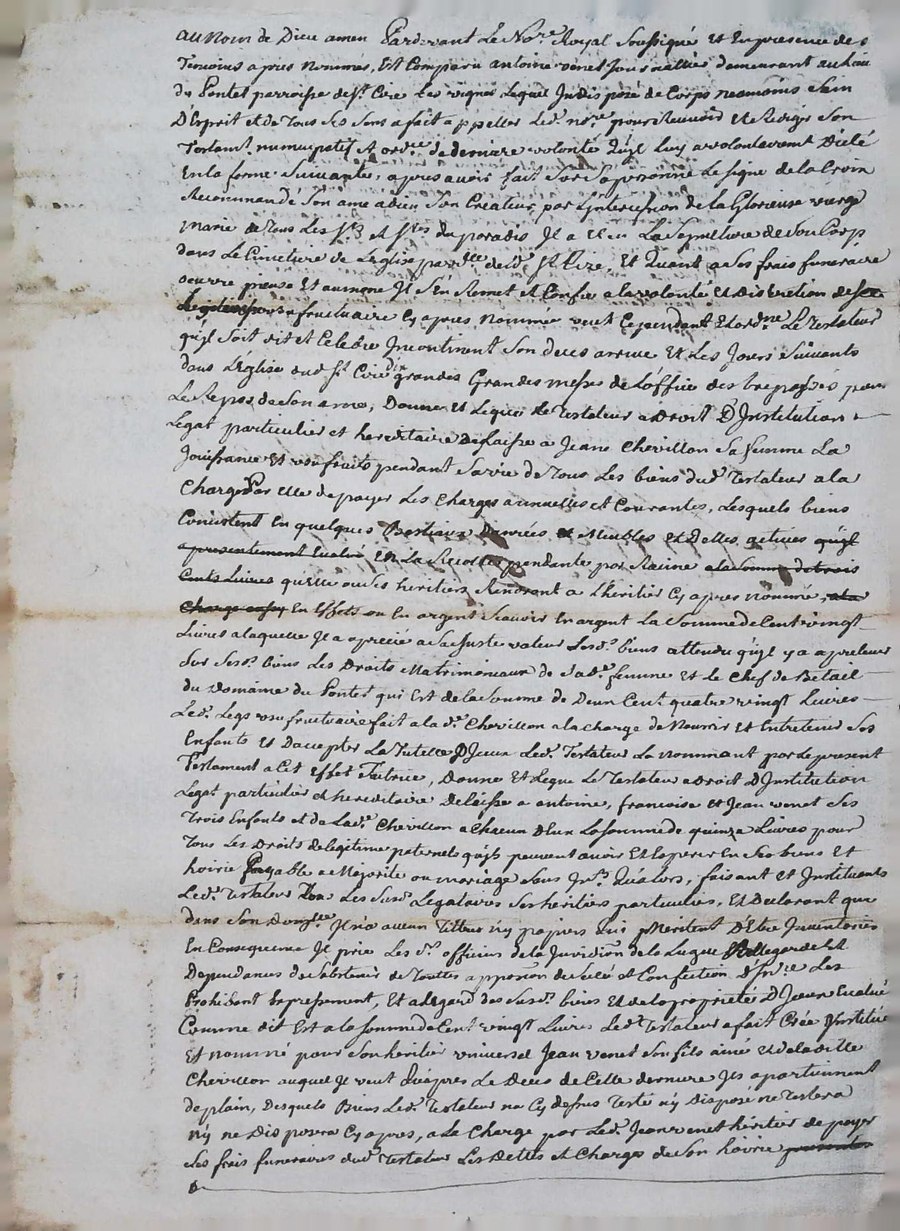 au Nom de Dieu amen Pardevant Le No.re Royal Soussigné et En presence des
Temoins apres Nommés, Est Comparu antoine venet Journallier demeurant au Lieu
du Pontet parroisse de S.t Cire Les vignes Lequel Indisposé de Corps neamoins Sain
D'Esprit et de Tous Ses Sens a fait appeller Led. no.re pour Recevoir et Rediger Son
Testam.t nuncupatif et ord.re de derniere volonté Qu'il Luy a volontairement Dicté
En la forme Suivante, apres avoir fait Sur Sa personne Le Signe de la Croix
Recommandé Son ame a dieu Son Createur par L'Intercession de la Glorieuse vierge
marie de Tous Les S.ts et S.tes du paradis Il a Eleu La Sepulture de Son Corp
dans Le Cimetiere de L'Eglise par.lle dud. S.t Cire, Et Quant a Ses frais funeraire
oeuvre pieuse Et aumone Il S'En Remet et Confie a la volonté et Discretion de
usufructuaire Cy apres Nommée veut Cependant et ord.ne Le Testateur
qu'il Soit dit et Celebré Incontinent Son deces arrivé Et Les Jours Suivants
dans L'Eglise dud. S.t Cire dix grandes Grandes messes de L'office des trepassés pour
Le Repos de Son ame, Donne et Legue Le Testateur a Droit D'Institution
Legat particulier et hereditaire Delaisse a Jeane Chevillon Sa femme La
Jouissance Et usufruits pendant Sa vie de Tous Les biens dud. Testateur a la
Charge Par Elle de payer Les Charges annuelles et Courantes, Lesquels biens
Consistent En quelques Bestiaux Denrées et Meubles et Dettes actives qu'il
apresentement Evalue Et La Recolte pendante par Racine a la Somme de trois
Cents Livres qu'Elle ou Ses heritiers Rendront a L'heritier Cy apres nommé, a la
Charge En Effets ou En argent Scavoir En argent La Somme de Cent vingt
Livres a laquelle Il a aprecié a Sa Juste valeur Lesd. biens attendu qu'il y a a prelever
Sur Sesd. biens Les Droits Matrimoniaux de Sad. femme Et le Chef de Betail
du Domaine du Pontet qui Est de la Somme de Deux Cent quatre vingt Livres
Led. Legs usufructuaire fait a lad. Chevillon a la charge de Nourrir et Entretenir Ses
Enfants Et D'accepter La Tutelle D'Iceux Led. Testateur La nommant par le present
Testament a Cet Effet Tutrice, Donne Et Legue Le Testateur a Droit D'Institution
Legat particulier et hereditaire Delaisse a antoine, francoise et Jean venet Ses
Trois Enfants et de Lad. Chevillon a Chacun D'Eux La Somme de quinze Livres pour
Tous Les Droits de legitime paternels qu'ils peuvent avoir Et Esperer En Ses biens Et
hoirie Payable a Majorité ou mariage Sans Faisant et Instituants
Led. Testateur Les Susd. Legataires Ses heritiers particuliers, Et Declarant que
dans Son Il n'a aucun Tittres n'y papiers qui Meritent D'Etre Inventoriés
En Consequence Il prie Les S.rs officiers de la Juridi.on de
Dependances de S'abstenir de Toutes apposition de Scelé et Confection D'Inv.re Les
Prohibant Expressement, Et a L'Egard des Susd. biens Et de la proprieté D'Iceux Evalué
Comme dit Est a la Somme de Cent vingt Livres Led. Testateur a fait Crée Institué
Et nommé pour Son heritier universel Jean venet Son fils ainé et de la ditte
Chevillon auquel Je veut Qu'apres Le Deces de Cette derniere Ils apartiennent
de plain, Desquels Biens Led. Testateur na Cy dessus Testé n'y Disposé ne Testera
n'y ne Disposera Cy apres, a La Charge par Led. Jean venet héritier de payer
Les frais funeraires dud. Testateur Les Dettes et Charges de Son hoirie